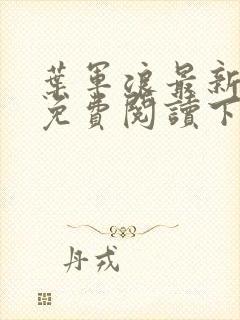 葉軍浪最新
免費閱讀下
丹戎